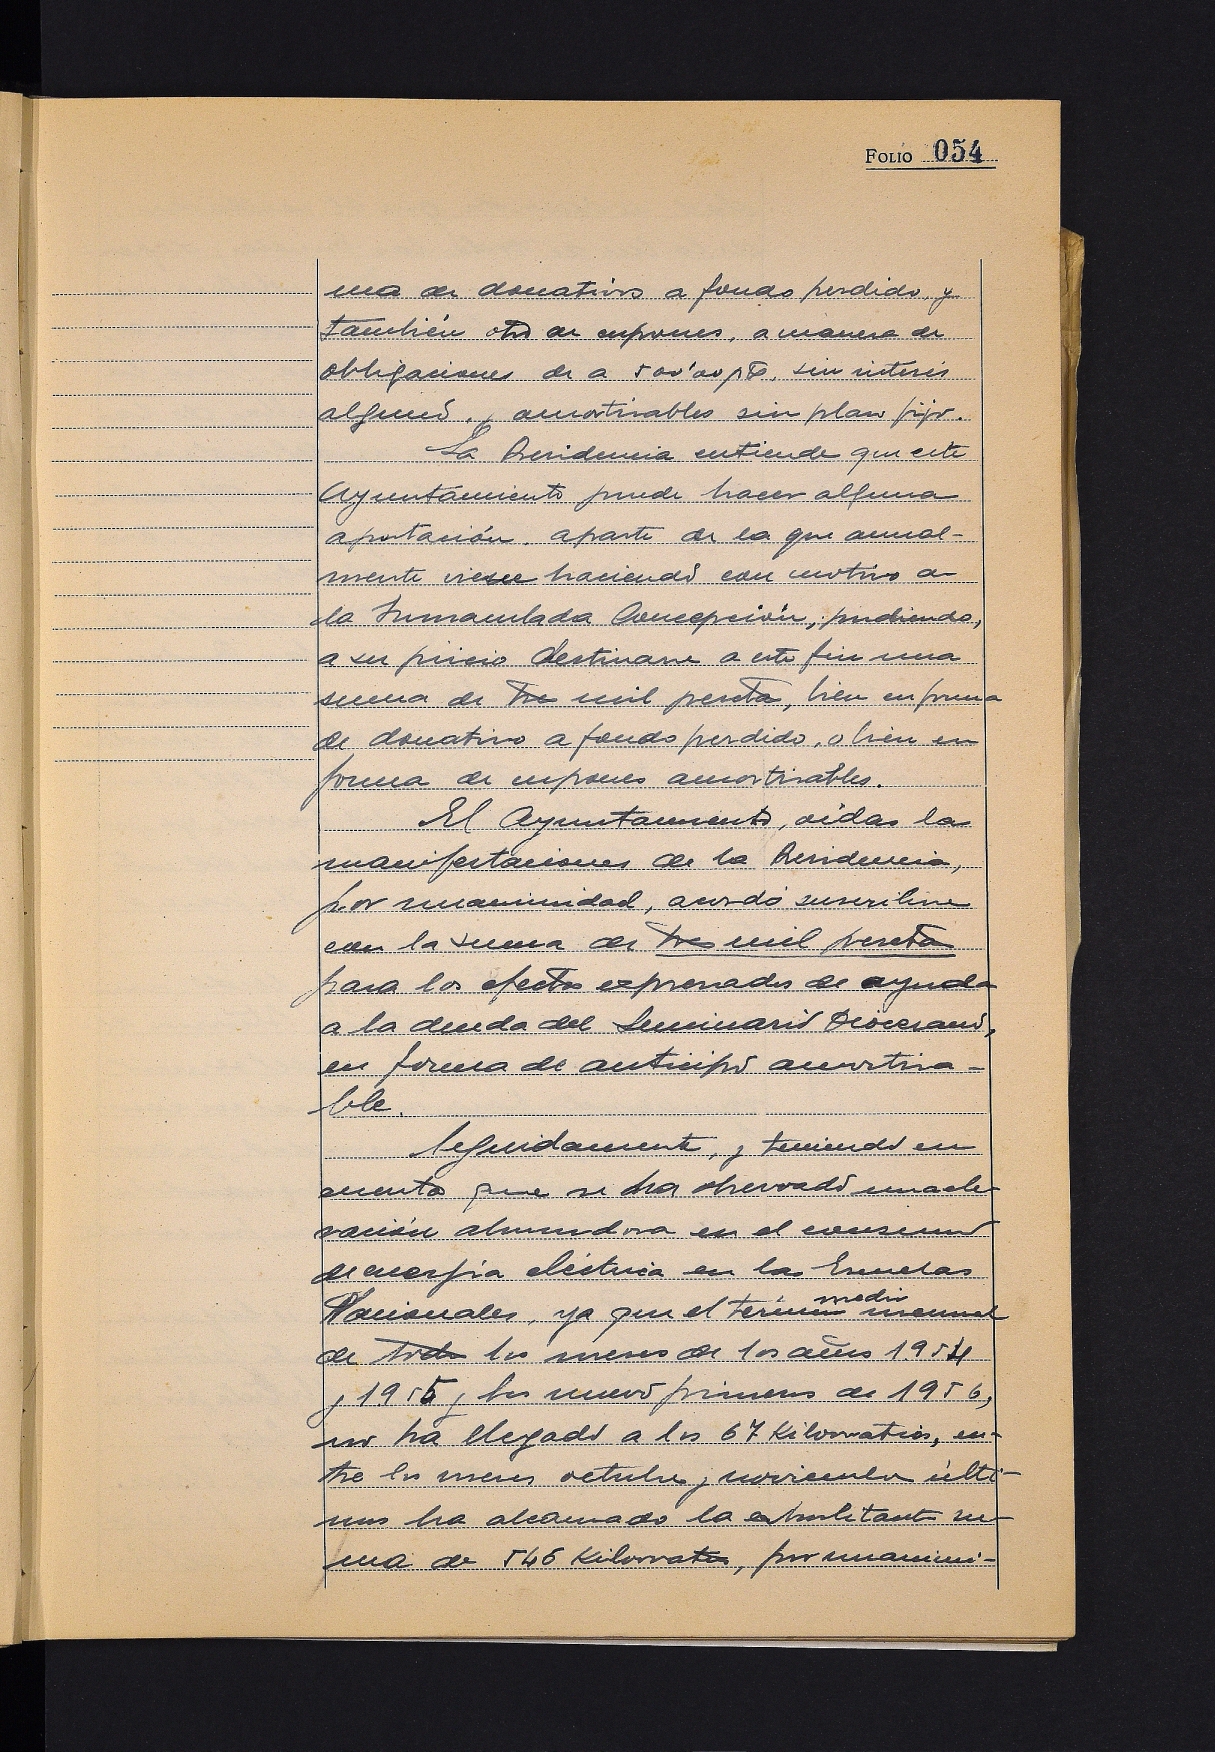 FOLIO 054
ma de donativos a fondo perdido y
también otro de cupones, a manera de
obligaciones de a 500'00 pts, sin interés
alguno, y amortizables sin plan fijo.
La Presidencia entiende que este
Ayuntamiento puede hacer alguna
aportación, aparte de la que anual-
mente viene haciendo con motivo de
la Inmaculada Concepción, pudiendo,
a su juicio destinarse a este fin una
suma de tres mil pesetas, bien en forma
de donativo a fondo perdido, o bien en
forma de cupones amortizables.
El Ayuntamiento, oídas las
manifestaciones de la Presidencia,
por unanimidad, acordó suscribirse
con la suma de tres mil pesetas
para los efectos expresados de ayuda
a la deuda del Seminario Diocesano,
en forma de anticipo amortiza-
ble.
Seguidamente, y teniendo en
cuenta que se ha observado una ele-
vación en el consumo
de energía eléctrica en las Escuelas
Nacionales, ya que el término medio mensual
de todos los meses de los años 1954
y 1955 y los nueve primeros de 1956,
no ha llegado a los 67 Kilowatios, en-
tre los meses octubre y noviembre últi-
mos ha alcanzado la exhorbitante su-
ma de 546 Kilowatios, por unanimi-